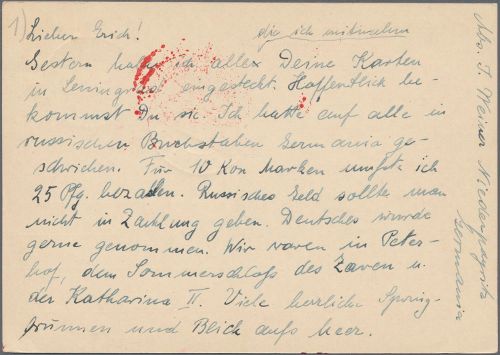 1)
Lieber Erich!
die ich mitnahm
Gestern habe ich alle Deine Karten
in Leningrad eingesteckt. Hoffentlich be-
kommst Du sie. Ich hatte auf alle in
russischen Buchstaben Germania ge-
schrieben. Für 10 Kop Marken mußte ich
25 Pfg. bezahlen. Russisches Geld sollte man
nicht in Zahlung geben. Deutsches wurde
gerne genommen. Wir waren in Peter-
hof, dem Sommerschloß des Zaren u.
der Katharina II. Viele herrliche Spring-
brunnen und Blick aufs Meer.
Abs. J. Weiner Niederpoyritz
Germania